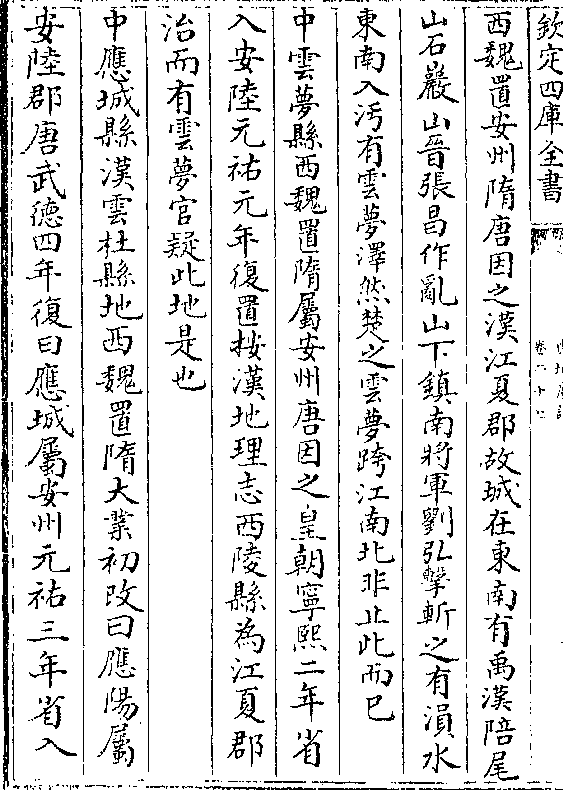 欽定四庫全書
西魏置安州隋唐因之漢江夏郡故城在東南有禹漢陪尾
山石巖山晉張昌作亂山下鎮南將軍劉弘擊斬之有溳水
東南入沔有雲夢澤然楚之雲夢跨江南北非止此而已
中雲夢縣西魏置隋屬安州唐因之皇朝寧熙二年省
入安陸元祐元年復置按漢地理志西陵縣為江夏郡
治而有雲夢官疑此地是也
中應城縣漢雲杜縣地西魏置隋大業初改曰應陽屬
安陸郡唐武德四年復曰應城屬安州元祐三年省入